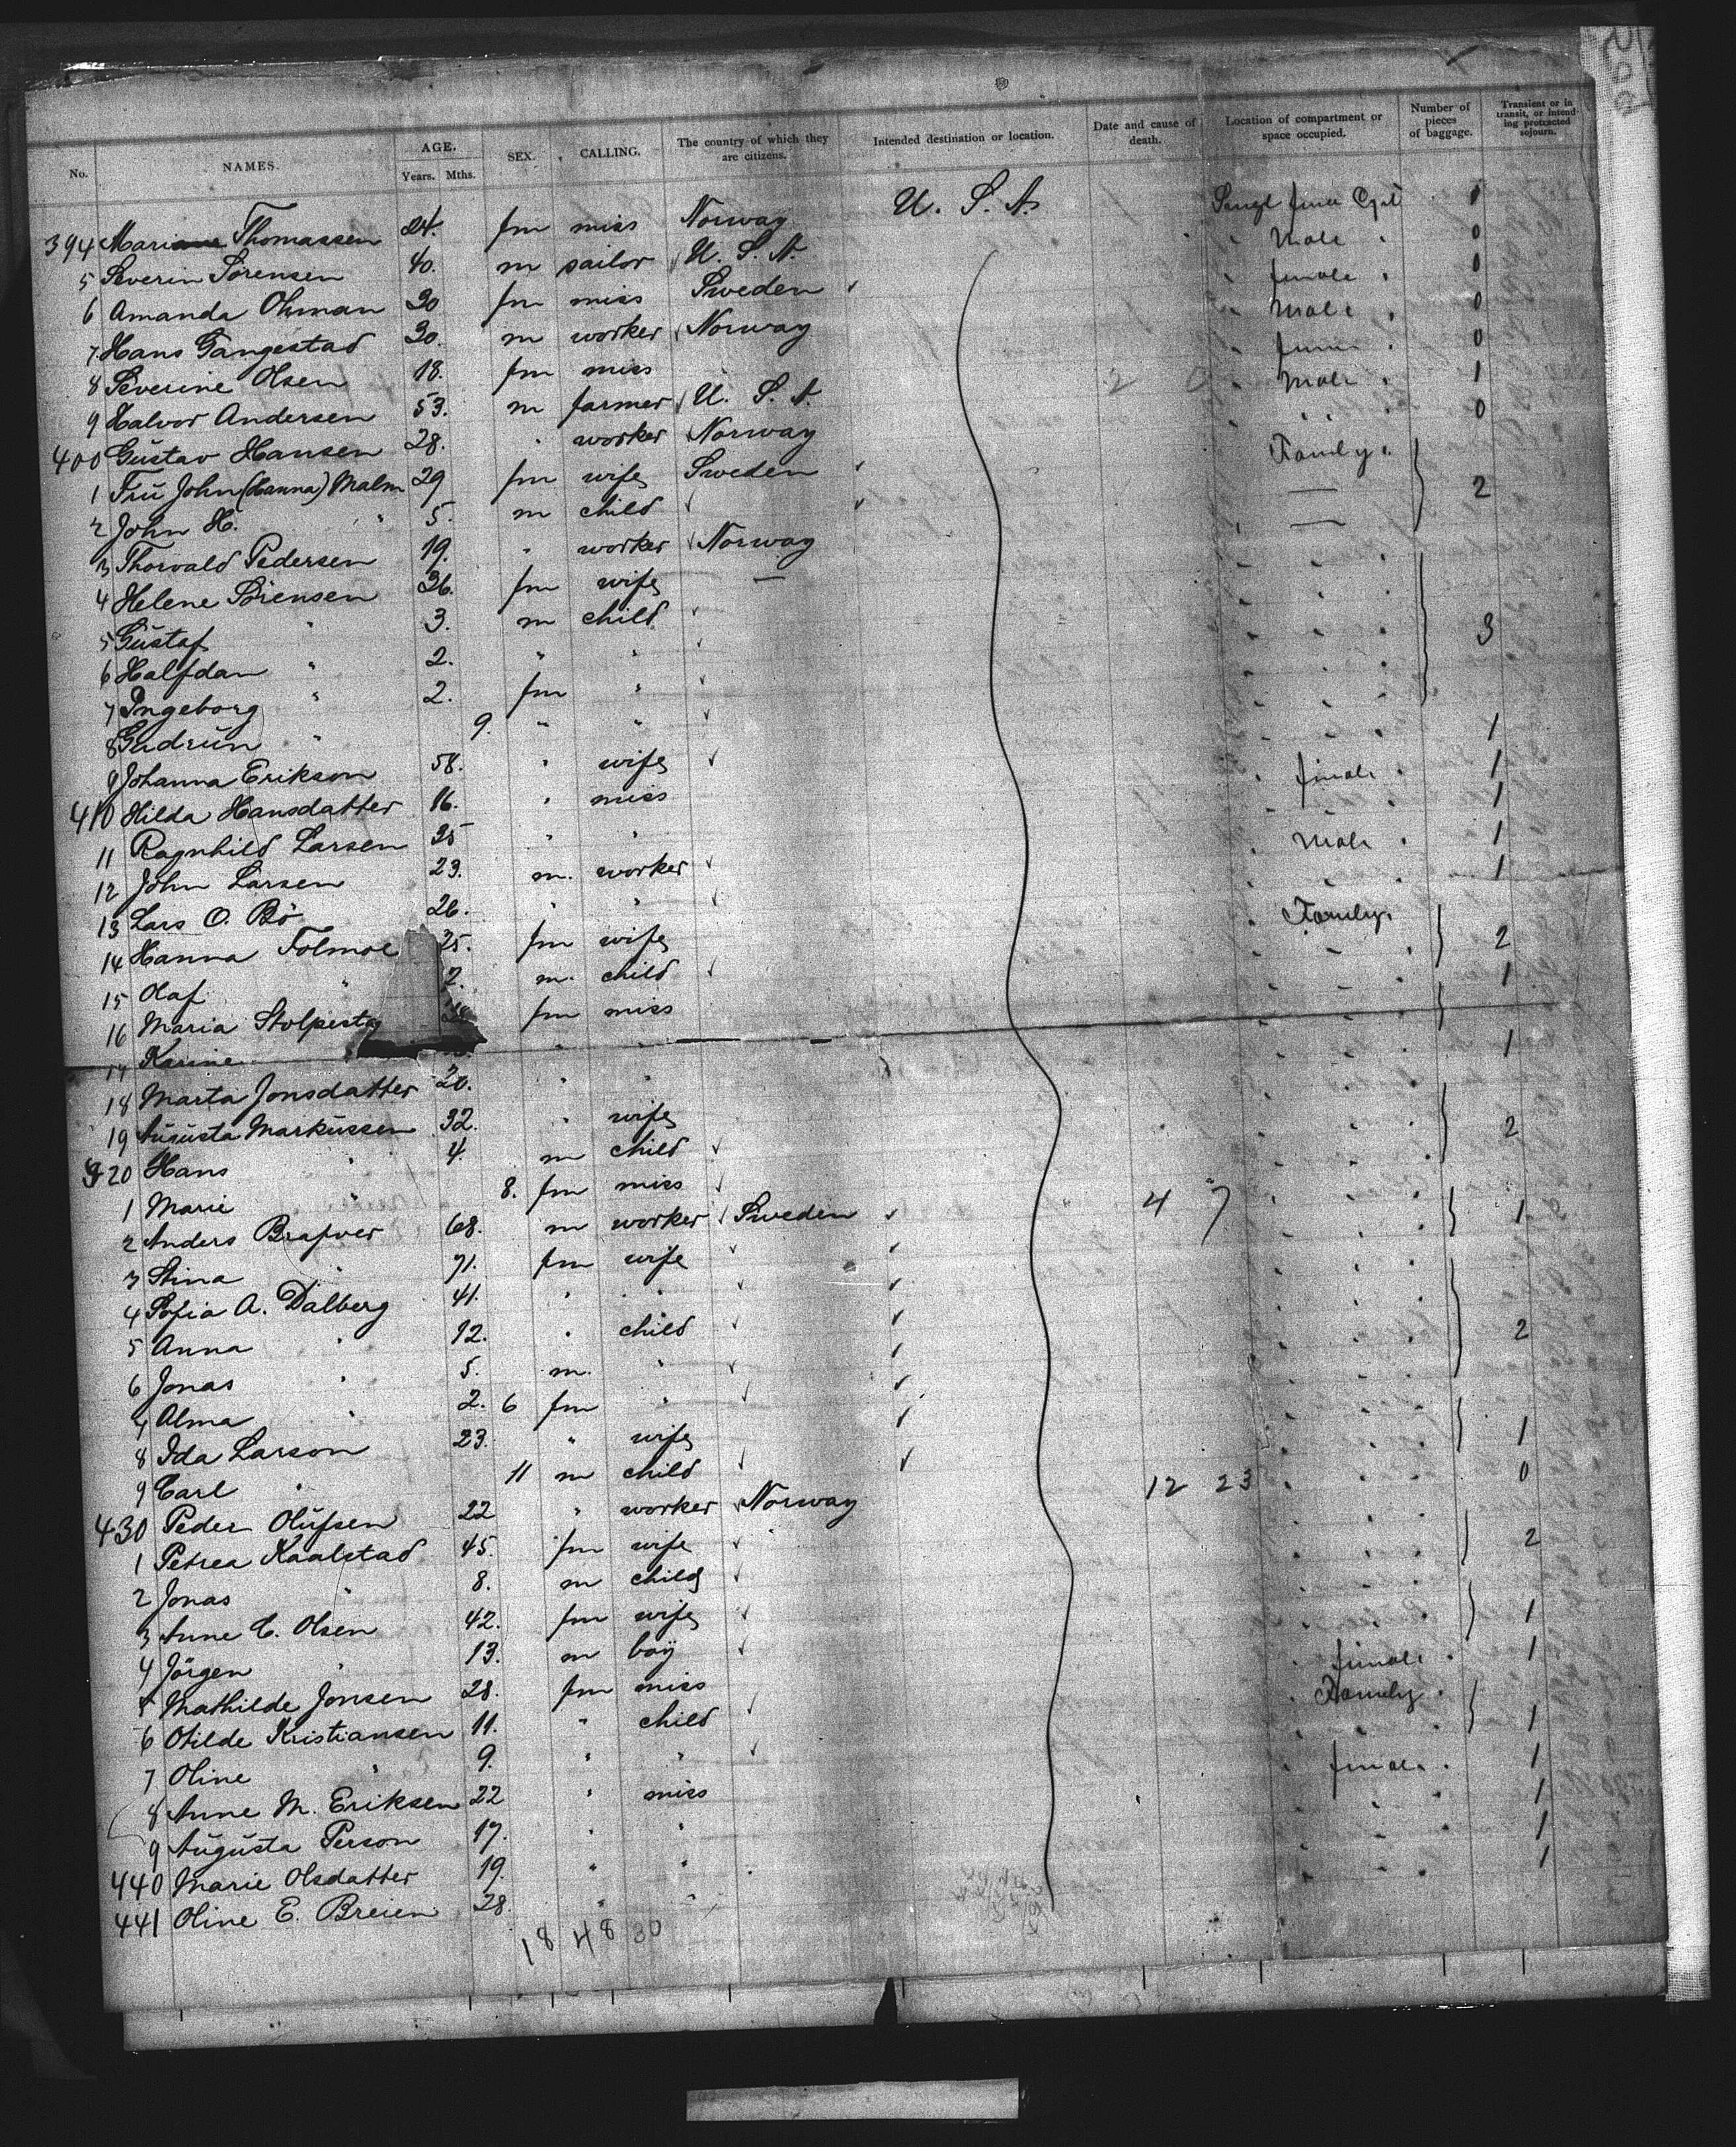 No. NAMES. AGE. Years. Mths. SEX. CALLING. The country of which they are citizens. Intended destination or location. Date and cause of death. Location of compartment or space occupied. Number of pieces of baggage. Transient or in transit, or intending protracted sojourn.
394 Mariane Thomassen 24. fm miss Norway U. S. A.
5 Severin Sörensen 40. m sailor U. S. A. " Male " 0
6 Amanda Ohman 30 fm miss Sweden " female " 0
7 Hans Tangestad 30. m worker Norway " Male " 0
8 Severine Olsen 18. fm miss " " 0
9 Halvor Andersen 53. m farmer U. S. A. 2 0 " Male " 1
400 Gustav Hansen 28. " worker Norway " " " 0
1 Fru John (Hanna) Malm 29 fm wife Sweden Family "
2 John H. " 5. m child — 2
3 Thorvald Pedersen 19. " worker Norway —
4 Helene Sörensen 36. fm wife —
5 Gustaf " 3. m child
6 Halfdan " 2. " " 3
7 Ingeborg " 2. fm "
8 Gudrun " 9. " "
9 Johanna Erikson 58. " wife 1
410 Hilda Hansdatter 16. " miss " female " 1
11 Ragnhild Larsen 25 " " 1
12 John Larsen 23. m. worker " Male " 1
13 Lars O. Bö 26. " " 1
14 Hanna Folmoe 25. fm wife " Family "
15 Olaf " 2. m. child 2
16 Maria fm miss 1
17 Karine " "
18 Marta Jonsdatter 20. " " 1
19 Augusta Markussen 32. " wife
420 Hans " 4. m child 2
1 Marie " 8. fm miss
2 Anders 68. m worker Sweden 4 7
3 Stina " 71. fm wife 1
4 Sofia A. Dalberg 41. " "
5 Anna " 12. " child
6 Jonas " 5. m. " 2
7 Alma " 2. 6 fm "
8 Ida Larson 23. " wife
9 Carl " 11 m child 1
430 Peder Olufsen 22 " worker Norway 12 23 0
1 Petrea Kaalstad 45. fm wife
2 Jonas " 8. m child 2
3 Anne C. Olsen 42. fm wife
4 Jörgen " 13. m boy 1
5 Mathilde Jonsen 28. fm miss " female " 1
6 Otilde Kristiansen 11. " child " Family "
7 Oline " 9. " " 1
8 Anne M. Eriksen 22 " miss " female " 1
9 Augusta Person 17. " " 1
440 Marie Olsdatter 19. " " 1
441 Oline E. Breien 28. " " 1
18 48 30